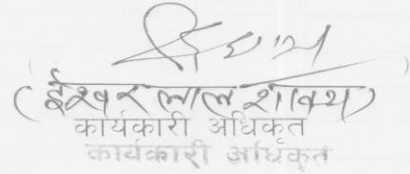 (ईश्वर लाल शाक्य)
कार्यकारी अधिकृत
कार्यकारी अधिकृत